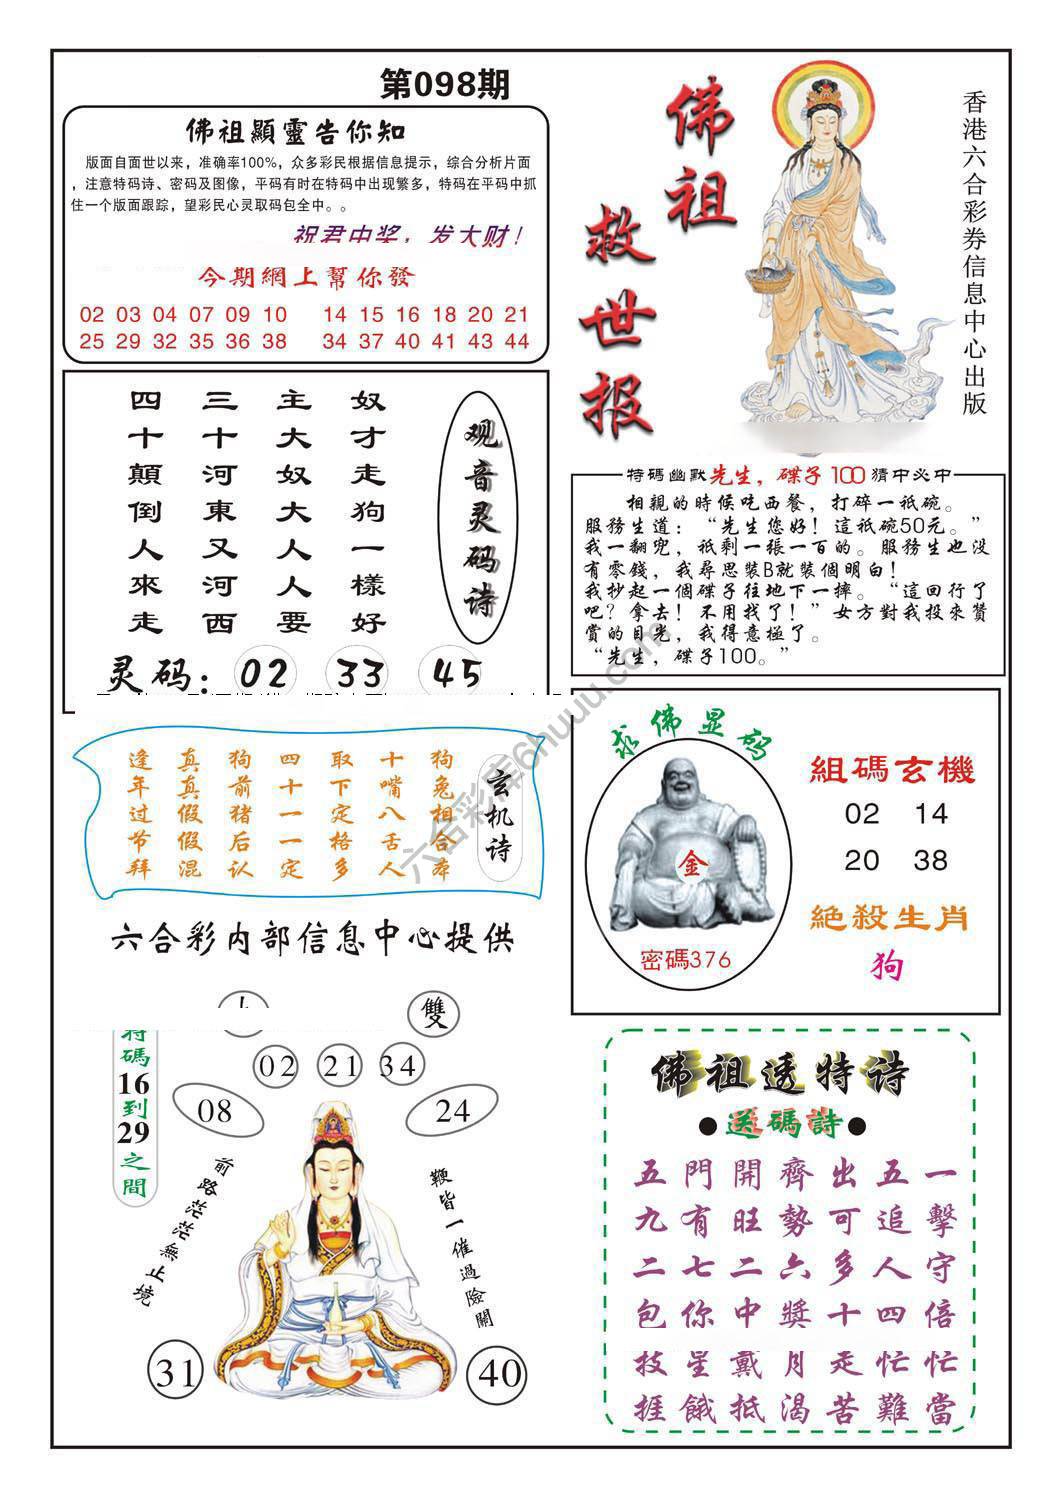 第098期
佛祖顯靈告你知
版面自面世以来，准确率100%，众多彩民根据信息提示，综合分析片面
，注意特码诗、密码及图像，平码有时在特码中出现繁多，特码在平码中抓
住一个版面跟踪，望彩民心灵取码包全中。。
祝君中奖，发大财！
今期網上幫你發
02 03 04 07 09 10 14 15 16 18 20 21
25 29 32 35 36 38 34 37 40 41 43 44
佛祖
救世报
香港六合彩券信息中心出版
观音灵码诗
奴才走狗一樣好
主大奴大人人要
三十河東又河西
四十顛倒人來走
灵码：02 33 45
特碼幽默先生，碟子100猜中必中
相親的時候吃西餐，打碎一祗碗。
服務生道：“先生您好！這祗碗50元。”
我一翻兜，祗剩一張一百的。服務生也没
有零錢，我尋思裝B就裝個明白！
我抄起一個碟子往地下一摔。“這回行了
吧？拿去！不用找了！”女方對我投來贊
賞的目光，我得意極了。
“先生，碟子100。”
玄机诗
逢真狗四取十狗
年真前十下嘴兔
过假猪一定八相
节假后一格舌合
拜混认定多人本
六合彩内部信息中心提供
求佛显码
金
密碼376
組碼玄機
02 14
20 38
絶殺生肖
狗
雙
特碼16到29之間
02 21 34
08 24
前路茫茫無止境
鞭皆一催過險關
31 40
佛祖透特诗
●送碼詩●
五門開齊出五一
九有旺勢可追擊
二七二六多人守
包你中獎十四倍
披星戴月走忙忙
捱餓抵渴苦難當
六合彩库6huuu.com